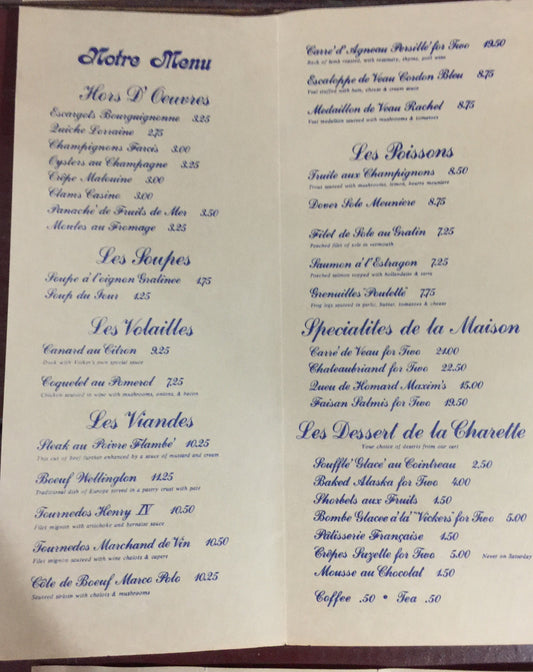 Notre Menu
Hors D'Oeuvres
Escargots Bourguignonne 3.25
Quiche Lorraine 2.75
Champignons Farcis 3.00
Oysters au Champagne 3.25
Crêpe Malouine 3.00
Clams Casino 3.00
Panaché de Fruits de Mer 3.50
Moules au Fromage 3.25
Les Soupes
Soupe à l'oignon Gratinee 1.75
Soup du Jour 1.25
Les Volailles
Canard au Citron 9.25
Duck with Vicker's own special sauce
Coquelet au Pomerol 7.25
Chicken sauteed in wine with mushrooms, onions, & bacon
Les Viandes
Steak au Poivre Flambé 10.25
Thin cut of beef further enhanced by a sauce of mustard and cream
Boeuf Wellington 11.25
Traditional dish of Europe served in a pastry crust with pate
Tournedos Henry IV 10.50
Filet mignon with artichoke and bernaise sauce
Tournedos Marchand de Vin 10.50
Filet mignon sauteed with wine chalots & capers
Côte de Boeuf Marco Polo 10.25
Sauteed sirloin with chalots & mushrooms
Carré d'Agneau Persillé for Two 19.50
Rack of lamb roasted, with rosemary, thyme, port wine
Escaloppe de Veau Cordon Bleu 8.75
Veal stuffed with ham, cheese & cream sauce
Medaillon de Veau Rachel 8.75
Veal medallion sauteed with mushrooms & tomatoes
Les Poissons
Truite aux Champignons 8.50
Trout sauteed with mushrooms, lemon, beurre meuniere
Dover Sole Meuniere 8.75
Filet de Sole au Gratin 7.25
Poached filet of sole in vermouth
Saumon a l'Estragon 7.25
Poached salmon topped with hollandaise &
Grenuilles Poulette 7.75
Frog legs sauteed in garlic, butter, tomatoes & cheese
Specialites de la Maison
Carré de Veau for Two 24.00
Chateaubriand for Two 22.50
Queu de Homard Maxim's 15.00
Faisan Salmis for Two 19.50
Les Dessert de la Charette
Your choice of deserts from our cart
Soufflé Glacé au Cointreau 2.50
Baked Alaska for Two 4.00
Shorbets aux Fruits 1.50
Bombe Glacee à la "Vickers" for Two 5.00
Pâtisserie Française 1.50
Crêpes Suzette for Two 5.00 Never on Saturday
Mousse au Chocolat 1.50
Coffee .50 • Tea .50